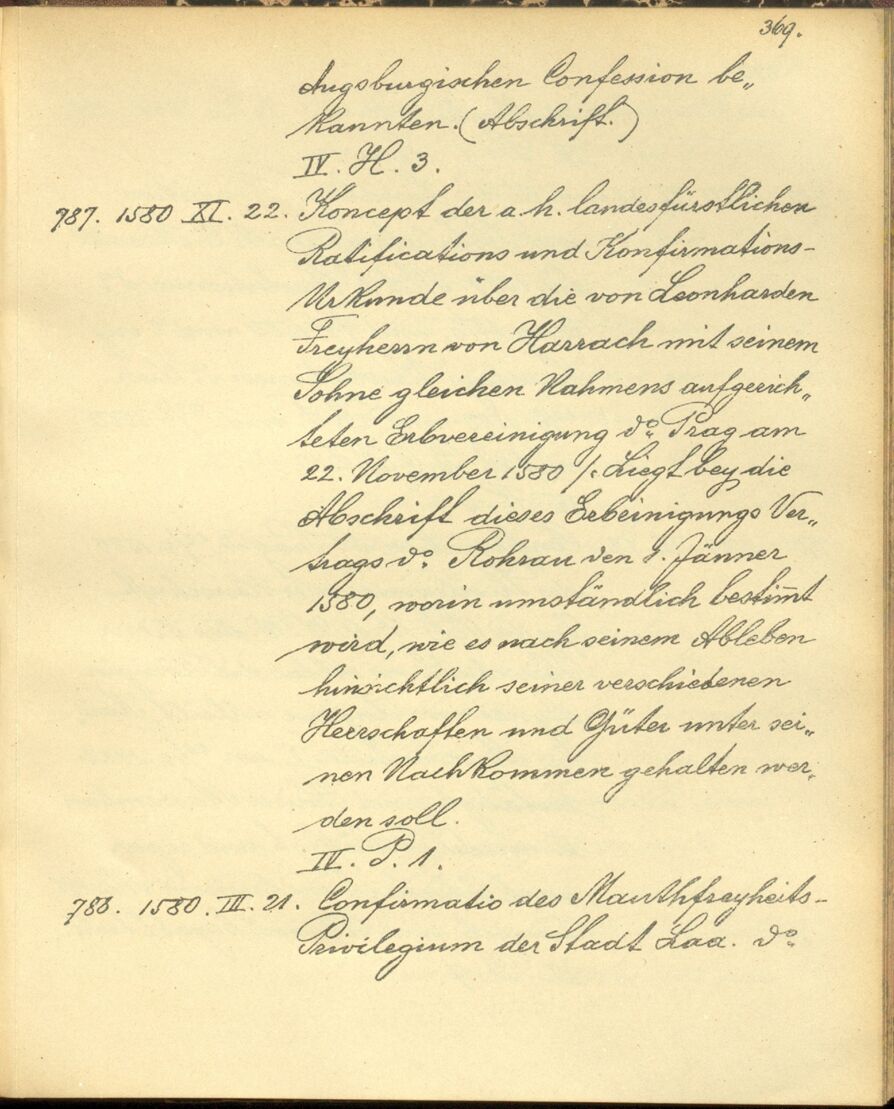 369.
Augsburgischen Confession be„
kannten. (Abschrift.)
IV. H. 3.
787. 1580 XI. 22. Koncept der a. h. landesfürstlichen
Ratifications und Konfirmations-
Urkunde über die von Leonharden
Freyherrn von Harrach mit seinem
Sohne gleichen Nahmens aufgerich„
teten Erbvereinigung do. Prag am
22. November 1580 /: Liegt bey die
Abschrift dieses Erbeinigungs Ver„
trags do. Rohrau den 1. Jänner
1580, worin umständlich bestim̅t
wird, wie es nach seinem Ableben
hinsichtlich seiner verschiedenen
Herrschaften und Güter unter sei„
nen Nachkommen gehalten wer„
den soll.
IV. P. 1.
788. 1580. III. 21. Confirmatio des Mauthfreyheits-
Privilegium der Stadt Laa. do